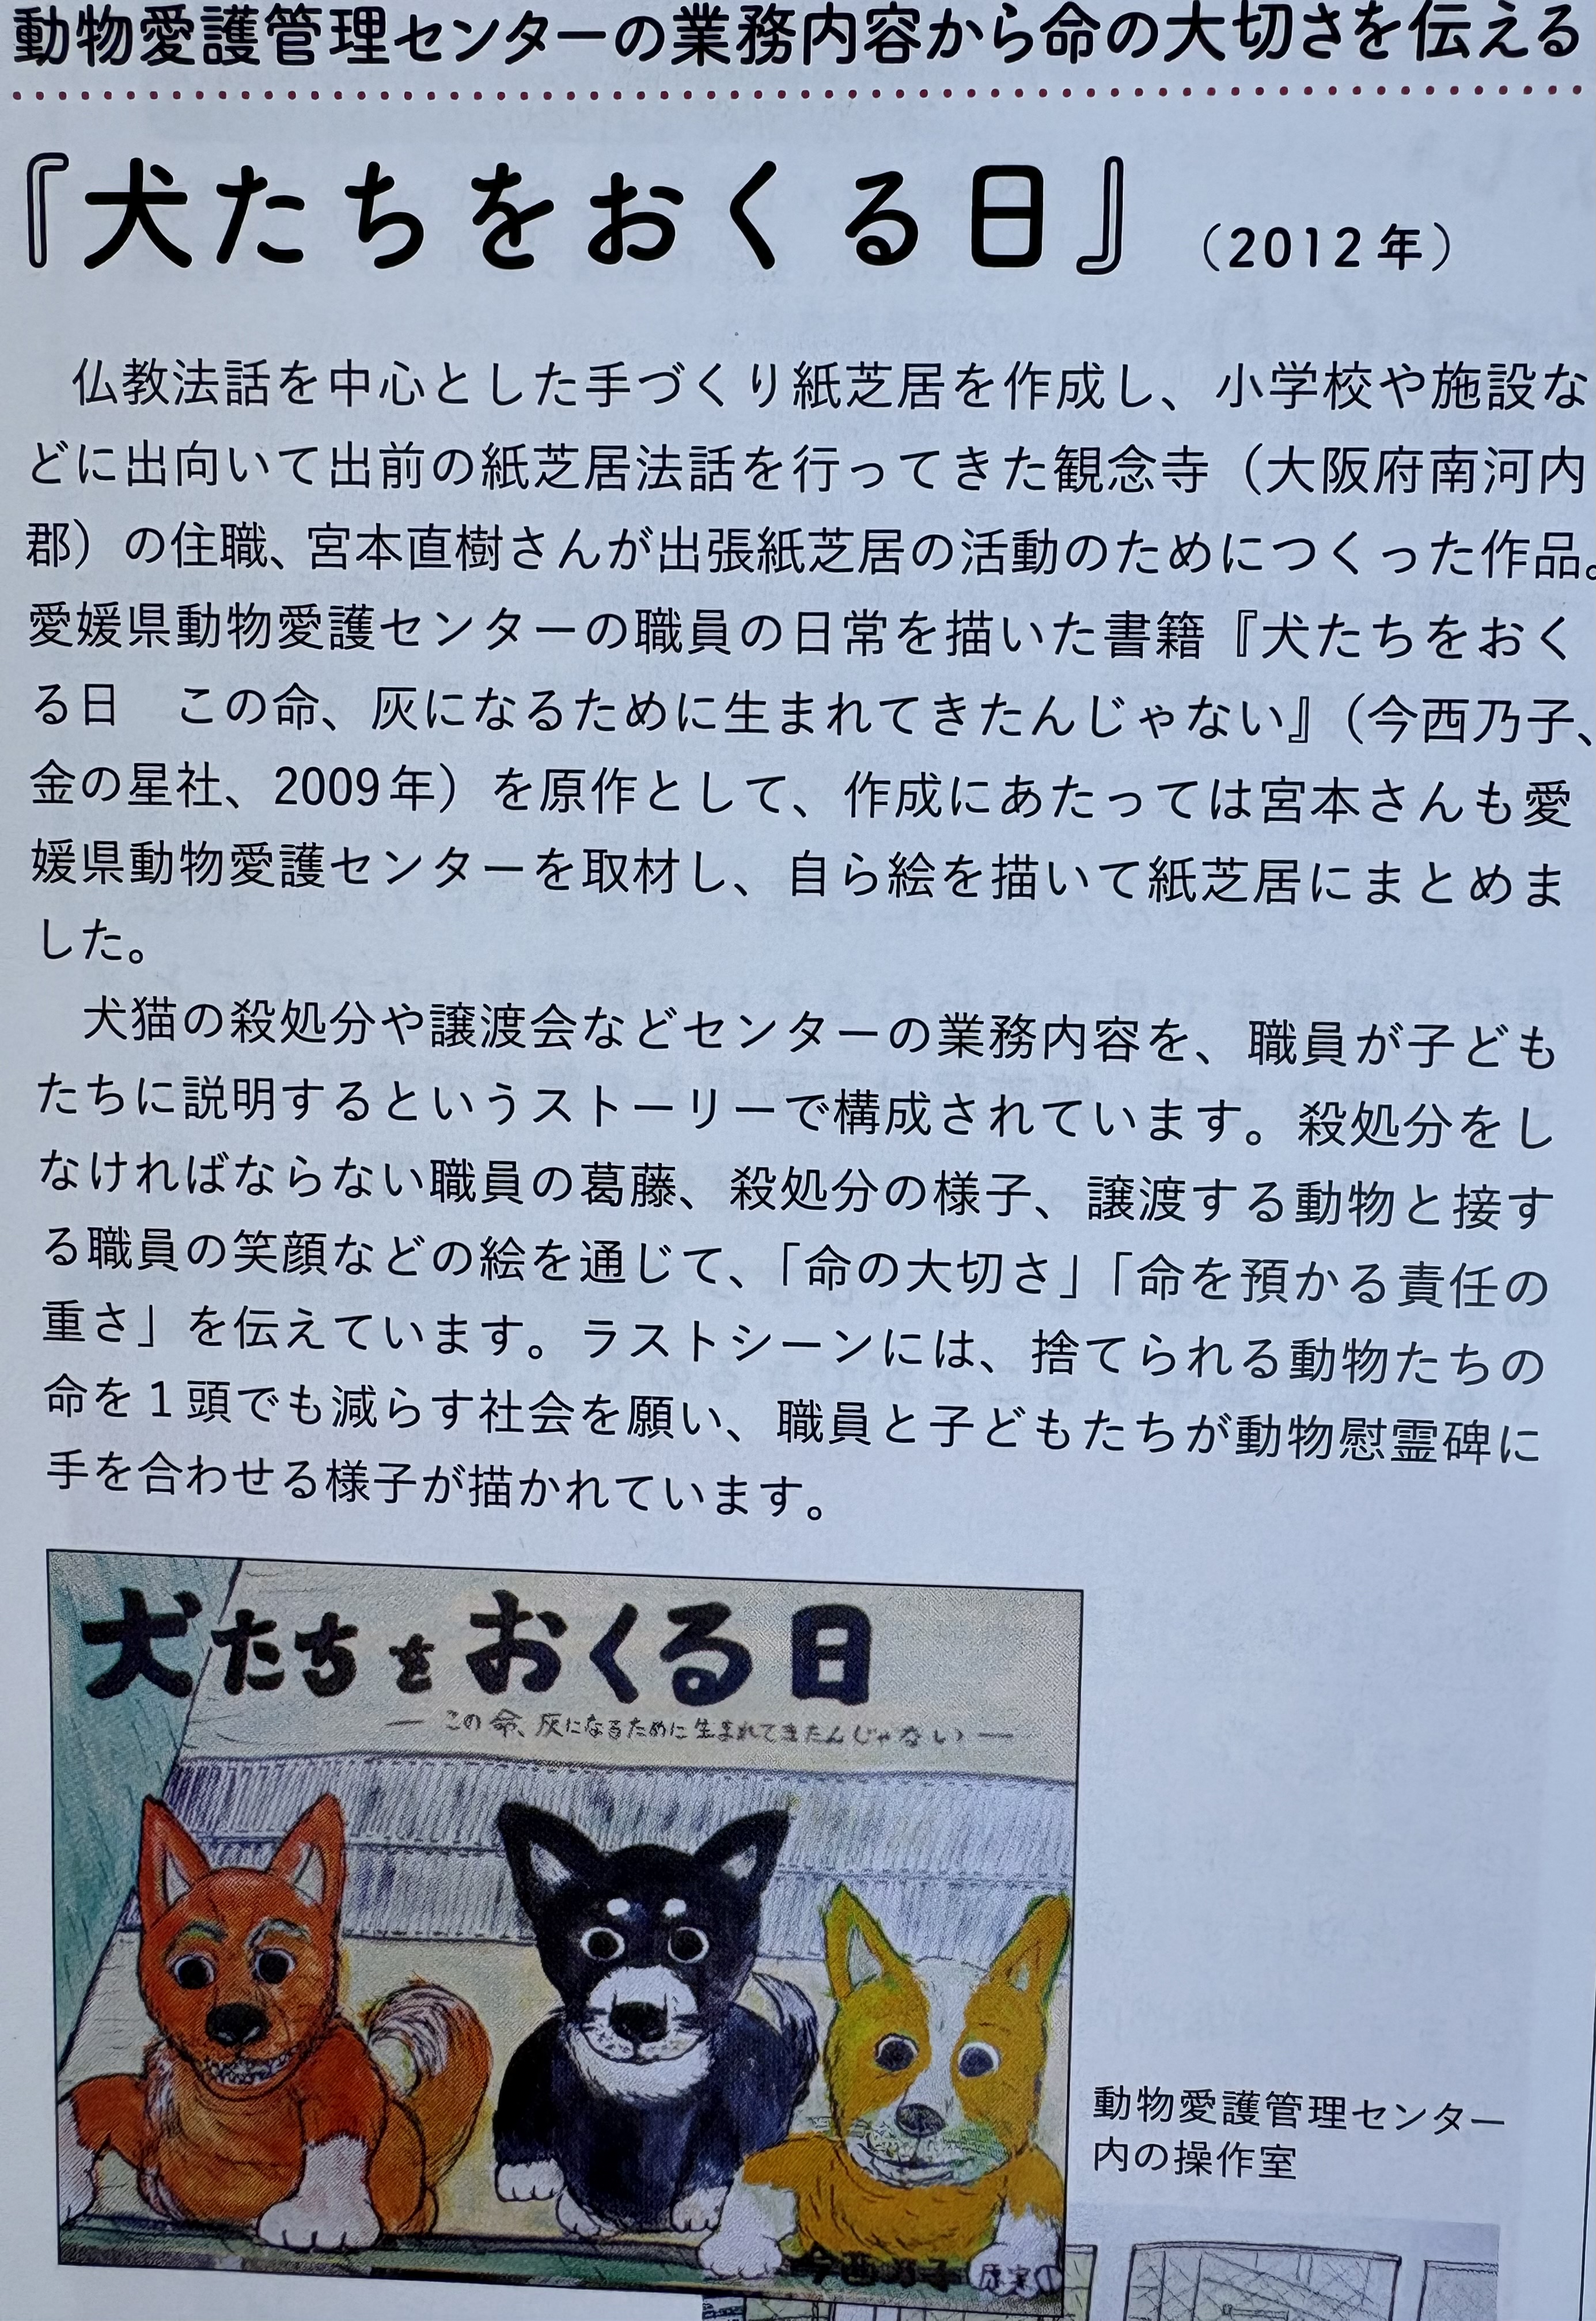 動物愛護管理センターの業務内容から命の大切さを伝える
『犬たちをおくる日』（2012年）
仏教法話を中心とした手づくり紙芝居を作成し、小学校や施設な
どに出向いて出前の紙芝居法話を行ってきた観念寺（大阪府南河内
郡）の住職、宮本直樹さんが出張紙芝居の活動のためにつくった作品。
愛媛県動物愛護センターの職員の日常を描いた書籍『犬たちをおく
る日　この命、灰になるために生まれてきたんじゃない』（今西乃子、
金の星社、2009年）を原作として、作成にあたっては宮本さんも愛
媛県動物愛護センターを取材し、自ら絵を描いて紙芝居にまとめま
した。
犬猫の殺処分や譲渡会などセンターの業務内容を、職員が子ども
たちに説明するというストーリーで構成されています。殺処分をし
なければならない職員の葛藤、殺処分の様子、譲渡する動物と接す
る職員の笑顔などの絵を通じて、「命の大切さ」「命を預かる責任の
重さ」を伝えています。ラストシーンには、捨てられる動物たちの
命を1頭でも減らす社会を願い、職員と子どもたちが動物慰霊碑に
手を合わせる様子が描かれています。
犬たちをおくる日
― この命、灰になるために生まれてきたんじゃない ―
今西乃子
動物愛護管理センター
内の操作室